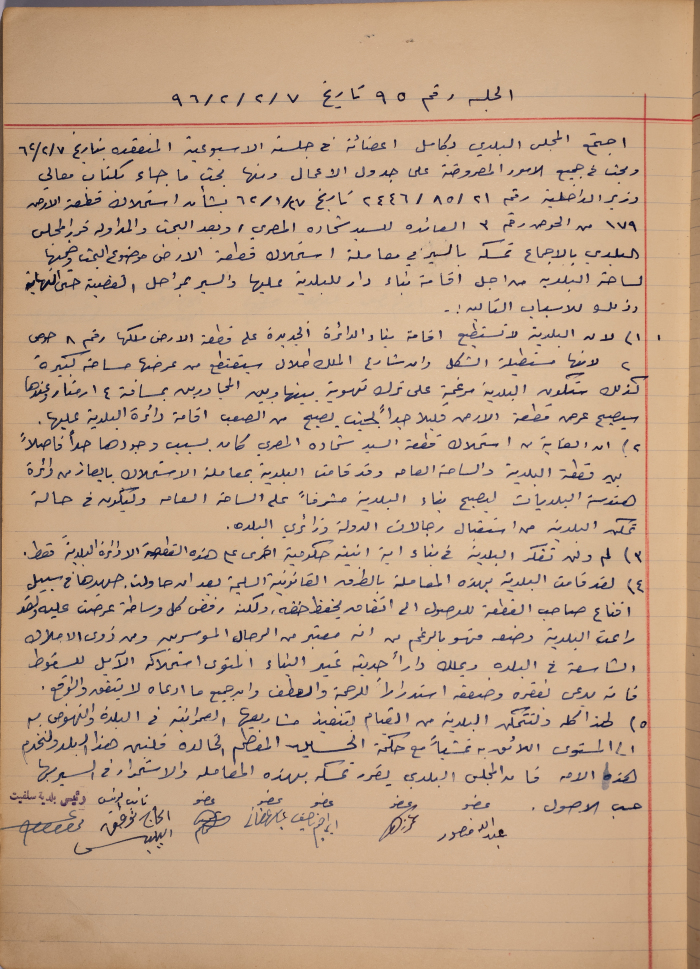 الجلسه رقم ٩٥ تاريخ ٩٦/٢/٢/٧
اجتمع المجلس البلدي بكامل اعضائة في جلسته الاسبوعية المنعقده بتاريخ ٦٢/٢/٧
وبحث في جميع الامور المعروضة على جدول الاعمال ومنها بحث ما جاء بكتاب معالي
وزير الداخلية رقم ٢٤٤٦/٨٥/٢١ تاريخ ٦٢/١/٢٧ بشأن استملاك قطعة الارض
١٧٩ من الحوض رقم ٣ العائده للسيد شحاده المصري، وبعد البحث والمداوله قرر المجلس
البلدي بالاجماع تمسكه بالسير في معاملة استملاك قطعة الارض موضوع البحث
لساحة البلدية من اجل اقامة بناء دار للبلدية عليها والسير بمراحل القضية حتى النهاية
وذلك للاسباب التاليه :-
١) لان البلدية لا تستطيع اقامة بناء الدائرة الجديدة على قطعة الارض ملكها رقم ٨ حوض
٢ لانها مستطيلة الشكل وان شارع الملك طلال سيقتطع من عرضها مساحة كبيرة
كذلك ستكون البلدية مرغمة على ترك تهوية بينها وبين المجاورين بمسافة ٤ امتار وعندها
سيصبح عرض قطعة الارض قليلا جداً بحيث يصبح من الصعب اقامة دائرة البلدية عليها.
٢) ان الغاية من استملاك قطعة السيد شحاده المصري كان بسبب وجودها حداً فاصلاً
بين قطعة البلدية والساحة العامه وقد قامت البلدية بمعاملة الاستملاك بايعاز من دائرة
هندسة البلديات ليصبح بناء البلدية مشرفاً على الساحة العامه ولتكون في حالة
تمكن البلدية من استقبال رجالات الدولة وزائري البلده.
٣) لم ولن تفكر البلدية في بناء اية ابنية حكومية اخرى على هذه القطعة الا دائرة البلدية فقط.
٤) لقد قامت البلدية بهذه المعاملة بالطرق القانونية السليمة بعد ان حاولت جهدها في سبيل
اقناع صاحب القطعة للوصول الى اتفاق يحفظ حقه، ولكنه رفض كل وساطة عرضت عليه ولقد
راعت البلدية وضعه فهو بالرغم من انه معتبر من الرجال الموسرين ومن ذوى الاملاك
الشاسعة في البلده ويملك داراً حديثه غير البناء المنوى استملاكه الآيل للسقوط
فانه يدعى لفقره وضعفه استدراراً للرحمة والعطف وان جميع ما ادعاه لا يتفق والواقع.
٥) لهذا كله ولتتمكن البلدية من القيام بتنفيذ مشاريعها العمرانية في البلدة والنهوض بها
الى المستوى اللائق به تمشياً مع حكمة الحسين المعظم الخالده فلنبن هذا البلد ولنخدم
هذه الامه فان المجلس البلدي يقرر تمسكه بهذه المعامله والاستمرار في السير بها
حسب الاصول.
عضو عضو عضو عضو عضو نائب الرئيس رئيس بلدية سلفيت
عبدالله منصور ابراهيم نايف الحاج توفيق